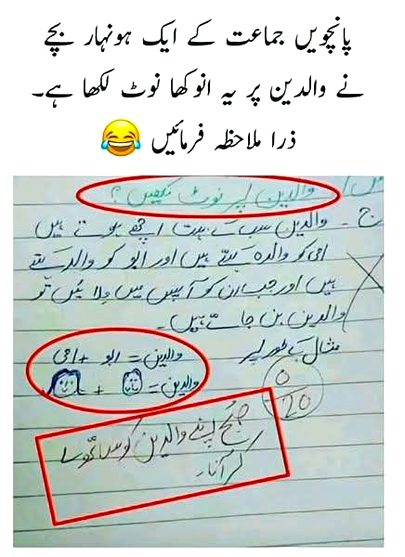 پانچویں جماعت کے ایک ہونہار بچے
نے والدین پر یہ انوکھا نوٹ لکھا ہے۔
ذرا ملاحظہ فرمائیں 😂
والدین پر نوٹ لکھیں؟
ج - والدین سب کے بہت اچھے ہوتے ہیں
امی کو والدہ کہتے ہیں اور ابو کو والد کہتے
ہیں اور جب ان کو آپس میں ملائیں تو
والدین بن جاتے ہیں۔
مثال کے طور پر
والدین = ابو + امی
والدین = +
0
20
صبح اپنے والدین کو ساتھ لے
کر آنا۔